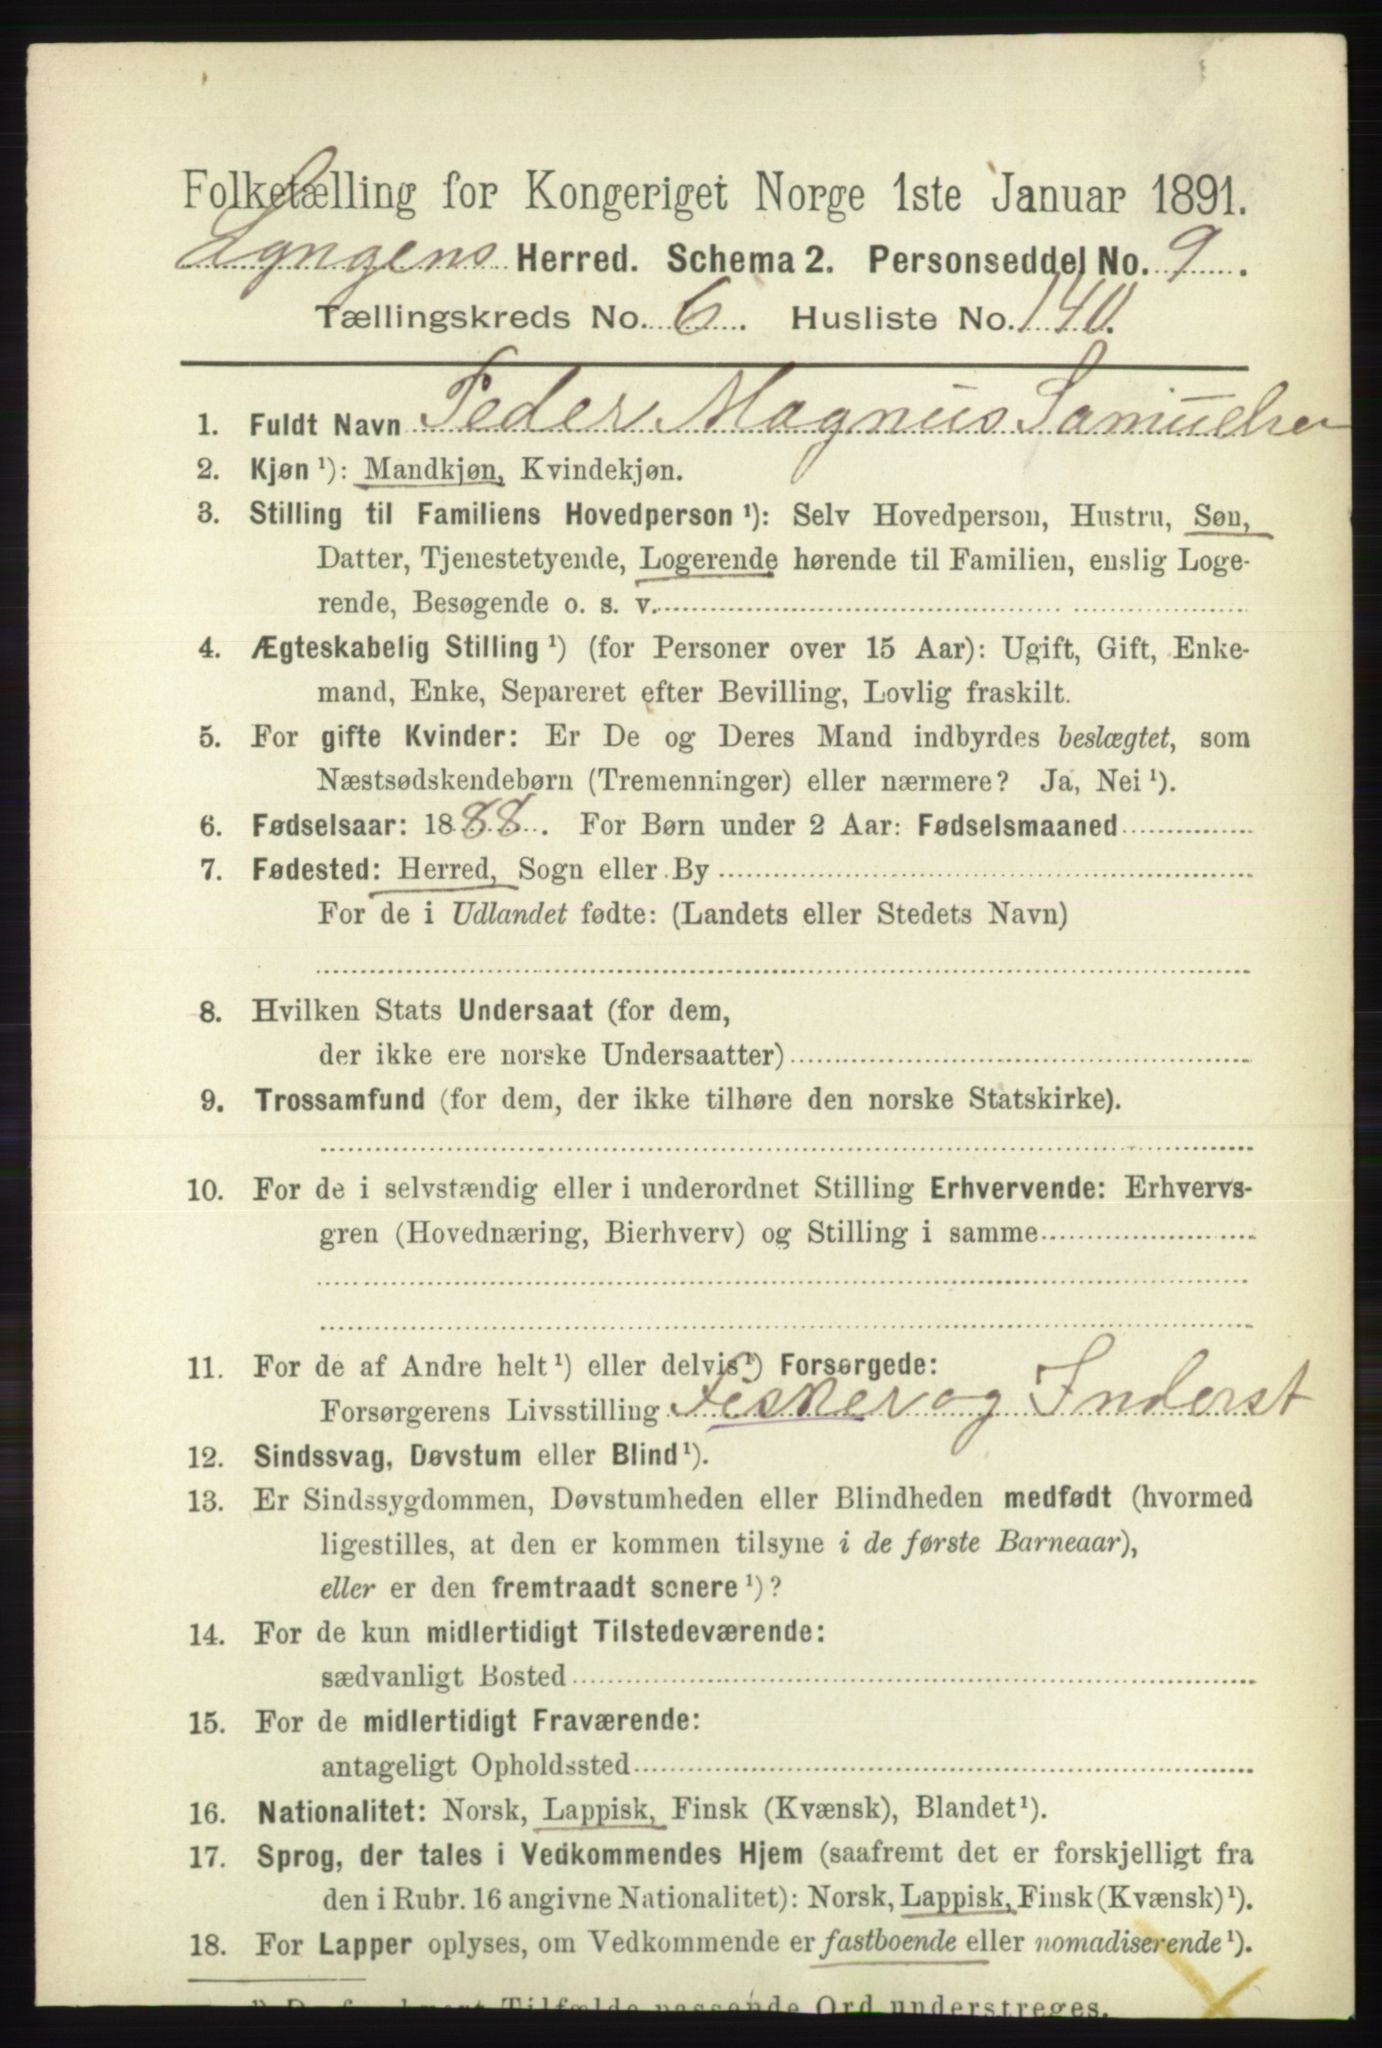 Folketælling for Kongeriget Norge 1ste Januar 1891.
Lyngens Herred. Schema 2. Personseddel No. 9.
Tællingskreds No. 6. Husliste No. 140.
1. Fuldt Navn Peder Magnus Samuelsen
2. Kjøn ¹): Mandkjøn, Kvindekjøn.
3. Stilling til Familiens Hovedperson ¹): Selv Hovedperson, Hustru, Søn,
Datter, Tjenestetyende, Logerende hørende til Familien, enslig Loge-
rende, Besøgende o. s. v.
4. Ægteskabelig Stilling ¹) (for Personer over 15 Aar): Ugift, Gift, Enke-
mand, Enke, Separeret efter Bevilling, Lovlig fraskilt.
5. For gifte Kvinder: Er De og Deres Mand indbyrdes beslægtet, som
Næstsødskendebørn (Tremenninger) eller nærmere? Ja, Nei ¹).
6. Fødselsaar: 1888. For Børn under 2 Aar: Fødselsmaaned
7. Fødested: Herred, Sogn eller By
For de i Udlandet fødte: (Landets eller Stedets Navn)
8. Hvilken Stats Undersaat (for dem,
der ikke ere norske Undersaatter)
9. Trossamfund (for dem, der ikke tilhøre den norske Statskirke).
10. For de i selvstændig eller i underordnet Stilling Erhvervende: Erhvervs-
gren (Hovednæring, Bierhverv) og Stilling i samme
11. For de af Andre helt ¹) eller delvis ¹) Forsørgede:
Forsørgerens Livsstilling Fisker og Inderst
12. Sindssvag, Døvstum eller Blind ¹).
13. Er Sindssygdommen, Døvstumheden eller Blindheden medfødt (hvormed
ligestilles, at den er kommen tilsyne i de første Barneaar),
eller er den fremtraadt senere ¹)?
14. For de kun midlertidigt Tilstedeværende:
sædvanligt Bosted
15. For de midlertidigt Fraværende:
antageligt Opholdssted
16. Nationalitet: Norsk, Lappisk, Finsk (Kvænsk), Blandet ¹).
17. Sprog, der tales i Vedkommendes Hjem (saafremt det er forskjelligt fra
den i Rubr. 16 angivne Nationalitet): Norsk, Lappisk, Finsk (Kvænsk) ¹).
18. For Lapper oplyses, om Vedkommende er fastboende eller nomadiserende ¹).
Tilfælde passende Ord understreges.